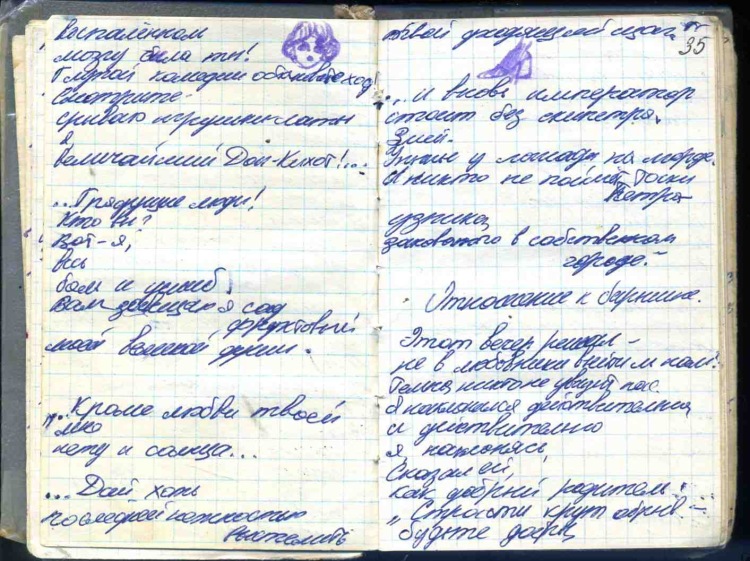 воспалённом
мозгу была ты!
Глупой комедии остановите ход!
Смотрите –
срываю игрушки-латы
я,
величайший Дон-Кихот!...
...Грядущие люди!
Кто вы?
Вот – я,
весь
боль и ушиб.
Вам завещаю я сад
фруктовый
моей великой души.
„...Кроме любви твоей
мне
нету и солнца...
...Дай хоть
последней нежностью
выстелить
твой уходящий шаг."
35
...и вновь император
стоит без скипетра.
Змей.
Унынье у лошади на морде.
И никто не поймёт тоски
Петра –
узника,
закованного в собственном
городе."
Отношение к барышне.
Этот вечер решал –
не в любовники выйти ль нам?
Темно, никто не увидит нас.
Я наклонился действительно,
и действительно
я, наклонясь,
сказал ей,
как добрый родитель:
„Страсти крут обрыв –
будьте добры,